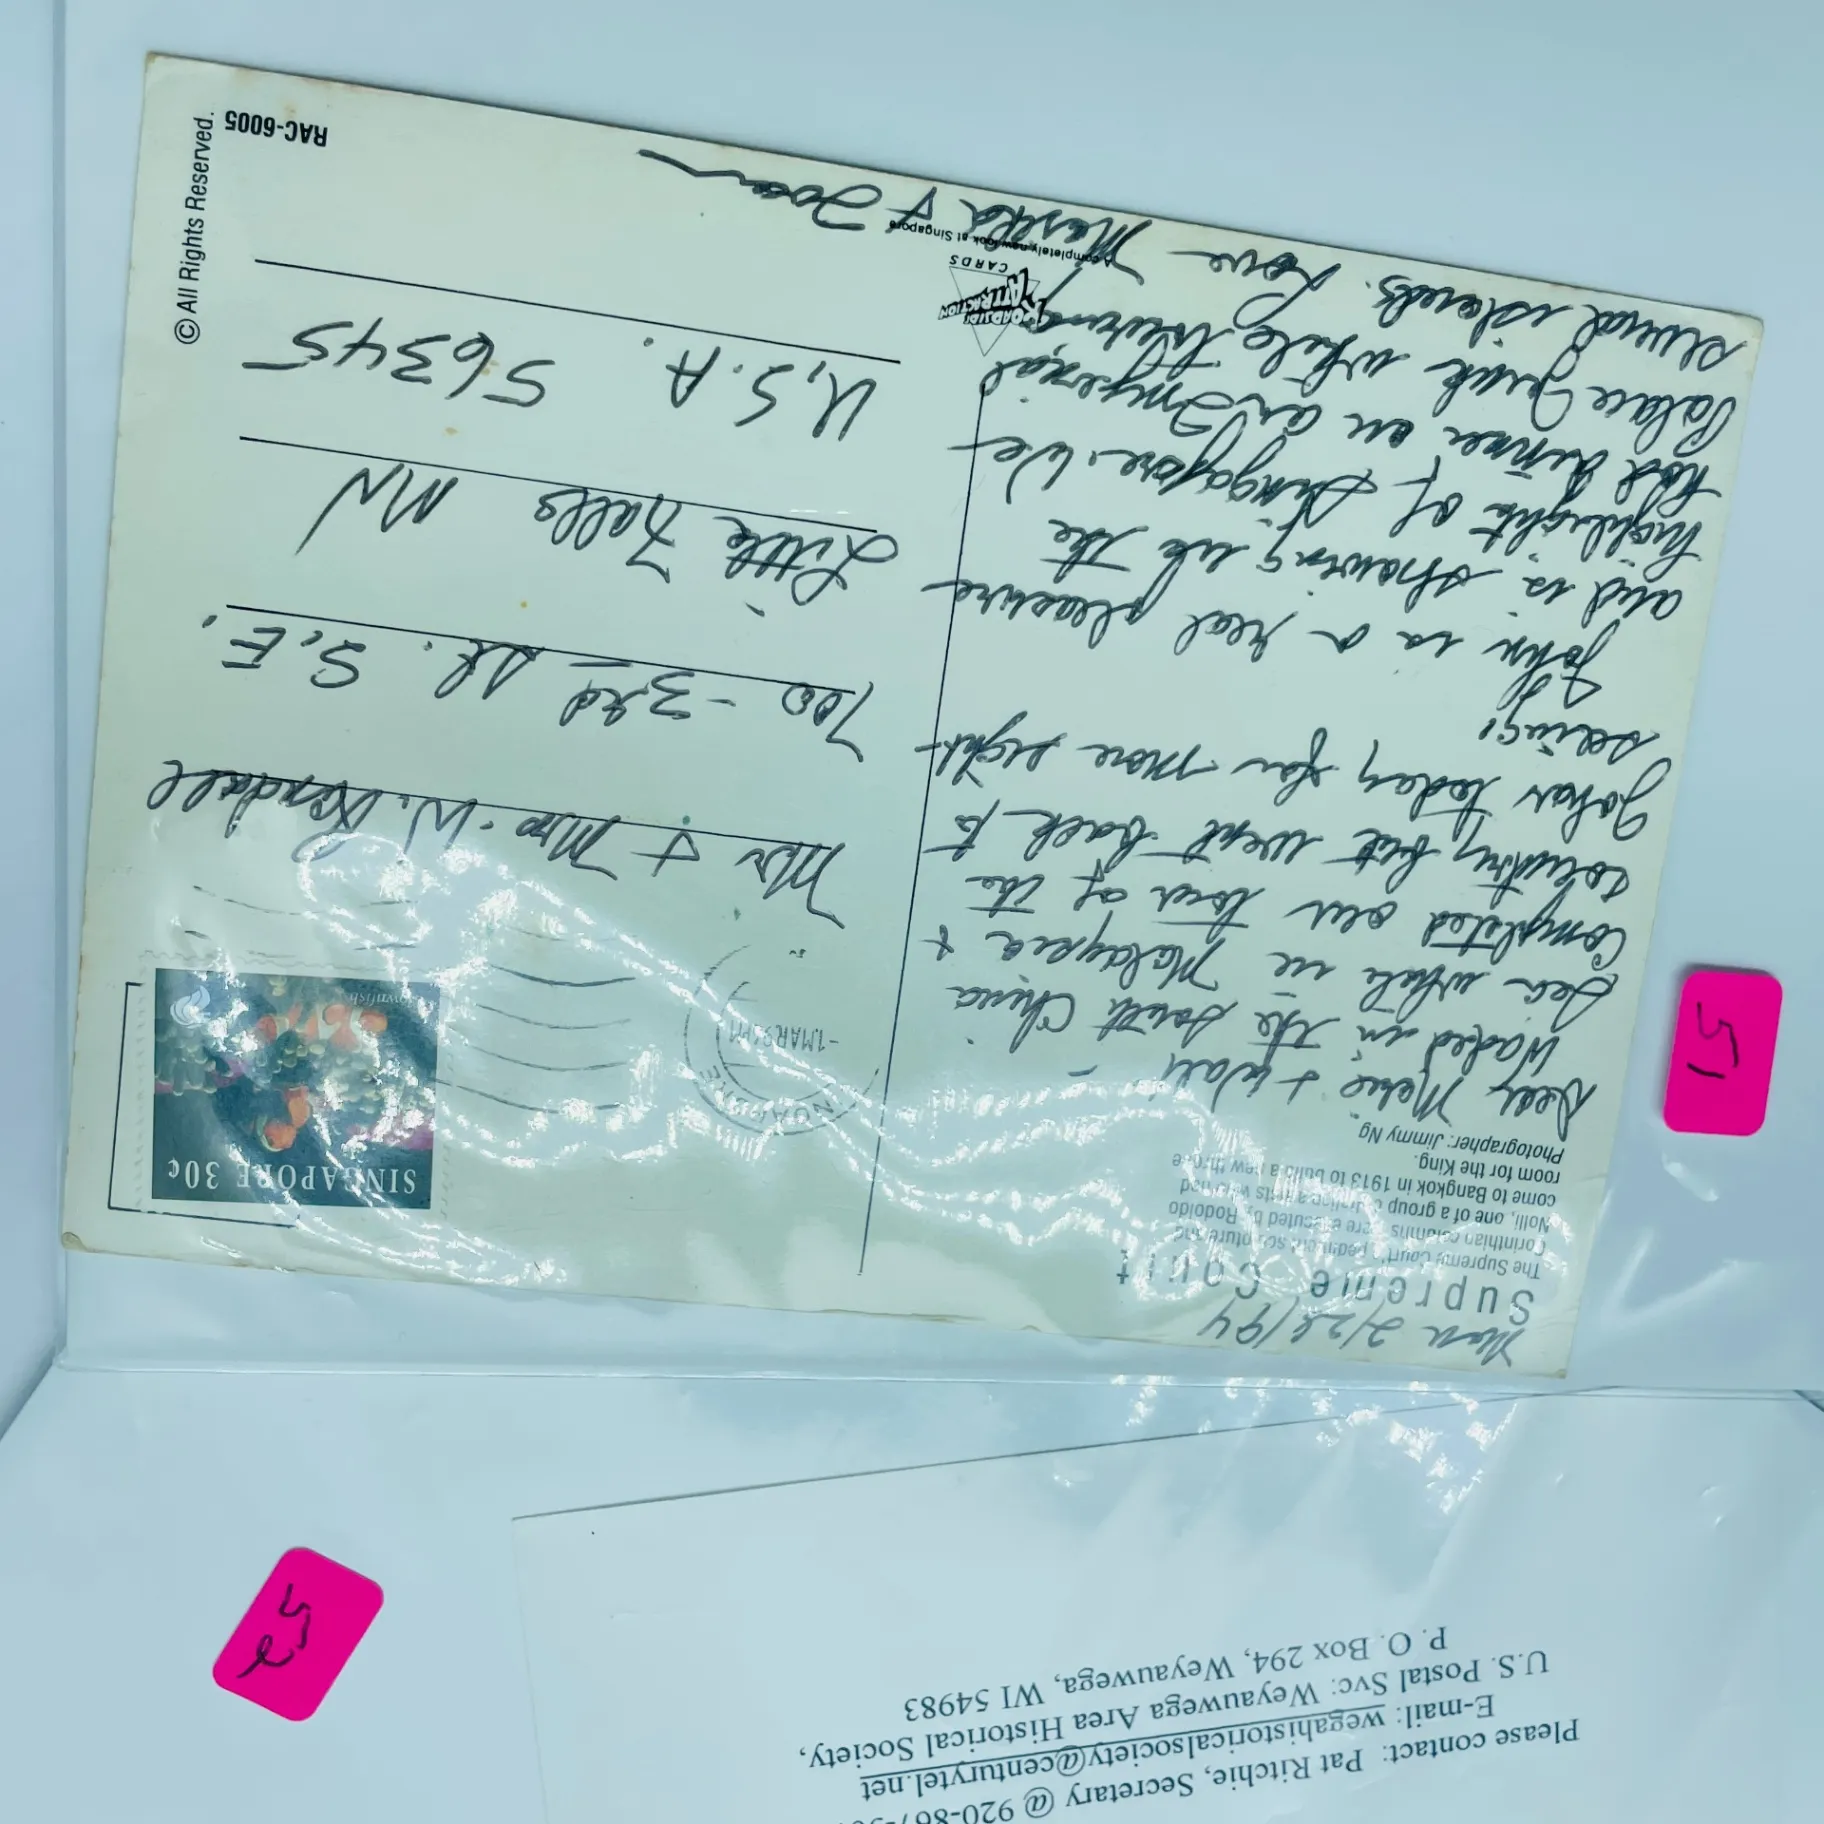 Mon 2/28/94
Supreme Court
The Supreme Court's pediment sculpture and
Corinthian columns were executed by Rodolfo
Nolli, one of a group of Italian artists who had
come to Bangkok in 1913 to build a new throne
room for the King.
Photographer: Jimmy Ng
Dear Merc & Walt –
Waded in the South China
Sea while in Malaysia &
Completed our tour of the
country but went back to
Johor today for more sight-
seeing!
John is a real pleasure
and is showing us the
highlights of Singapore. We
had dinner on an Imperial
Palace Junk while touring
several islands. Love
& Joan
ROADSIDE
ATTRACTION
CARDS
A completely new look at Singapore
SINGAPORE 30c
clownfish
SINGAPORE
-1MAR94PM
Mr & Mrs. W. Kendall
700 - 3rd St. S.E.
Little Falls MN
U.S.A. 56345
© All Rights Reserved.
RAC-6005
51
52
Please contact: Pat Ritchie, Secretary @ 920-867-
E-mail: wegahistoricalsociety@centurytel.net
U.S. Postal Svc: Weyauwega Area Historical Society,
P. O. Box 294, Weyauwega, WI 54983